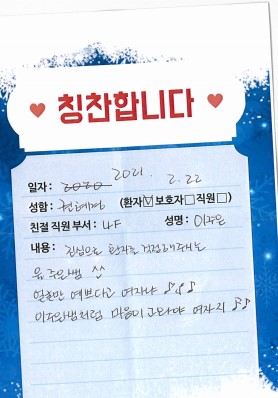 ♥ 칭찬합니다 ♥
일자 : 2021. 2. 22
성함 : (환자☑ 보호자☐ 직원☐)
친절 직원 부서 : 4F 성명 : 이주은
내용 : 진심으로 환자를 걱정해주시는
이주은쌤 ^^
얼굴만 예쁘다고 여자냐 ♪♪♪
이주은쌤처럼 마음이 고와야 여자지 ♪♪